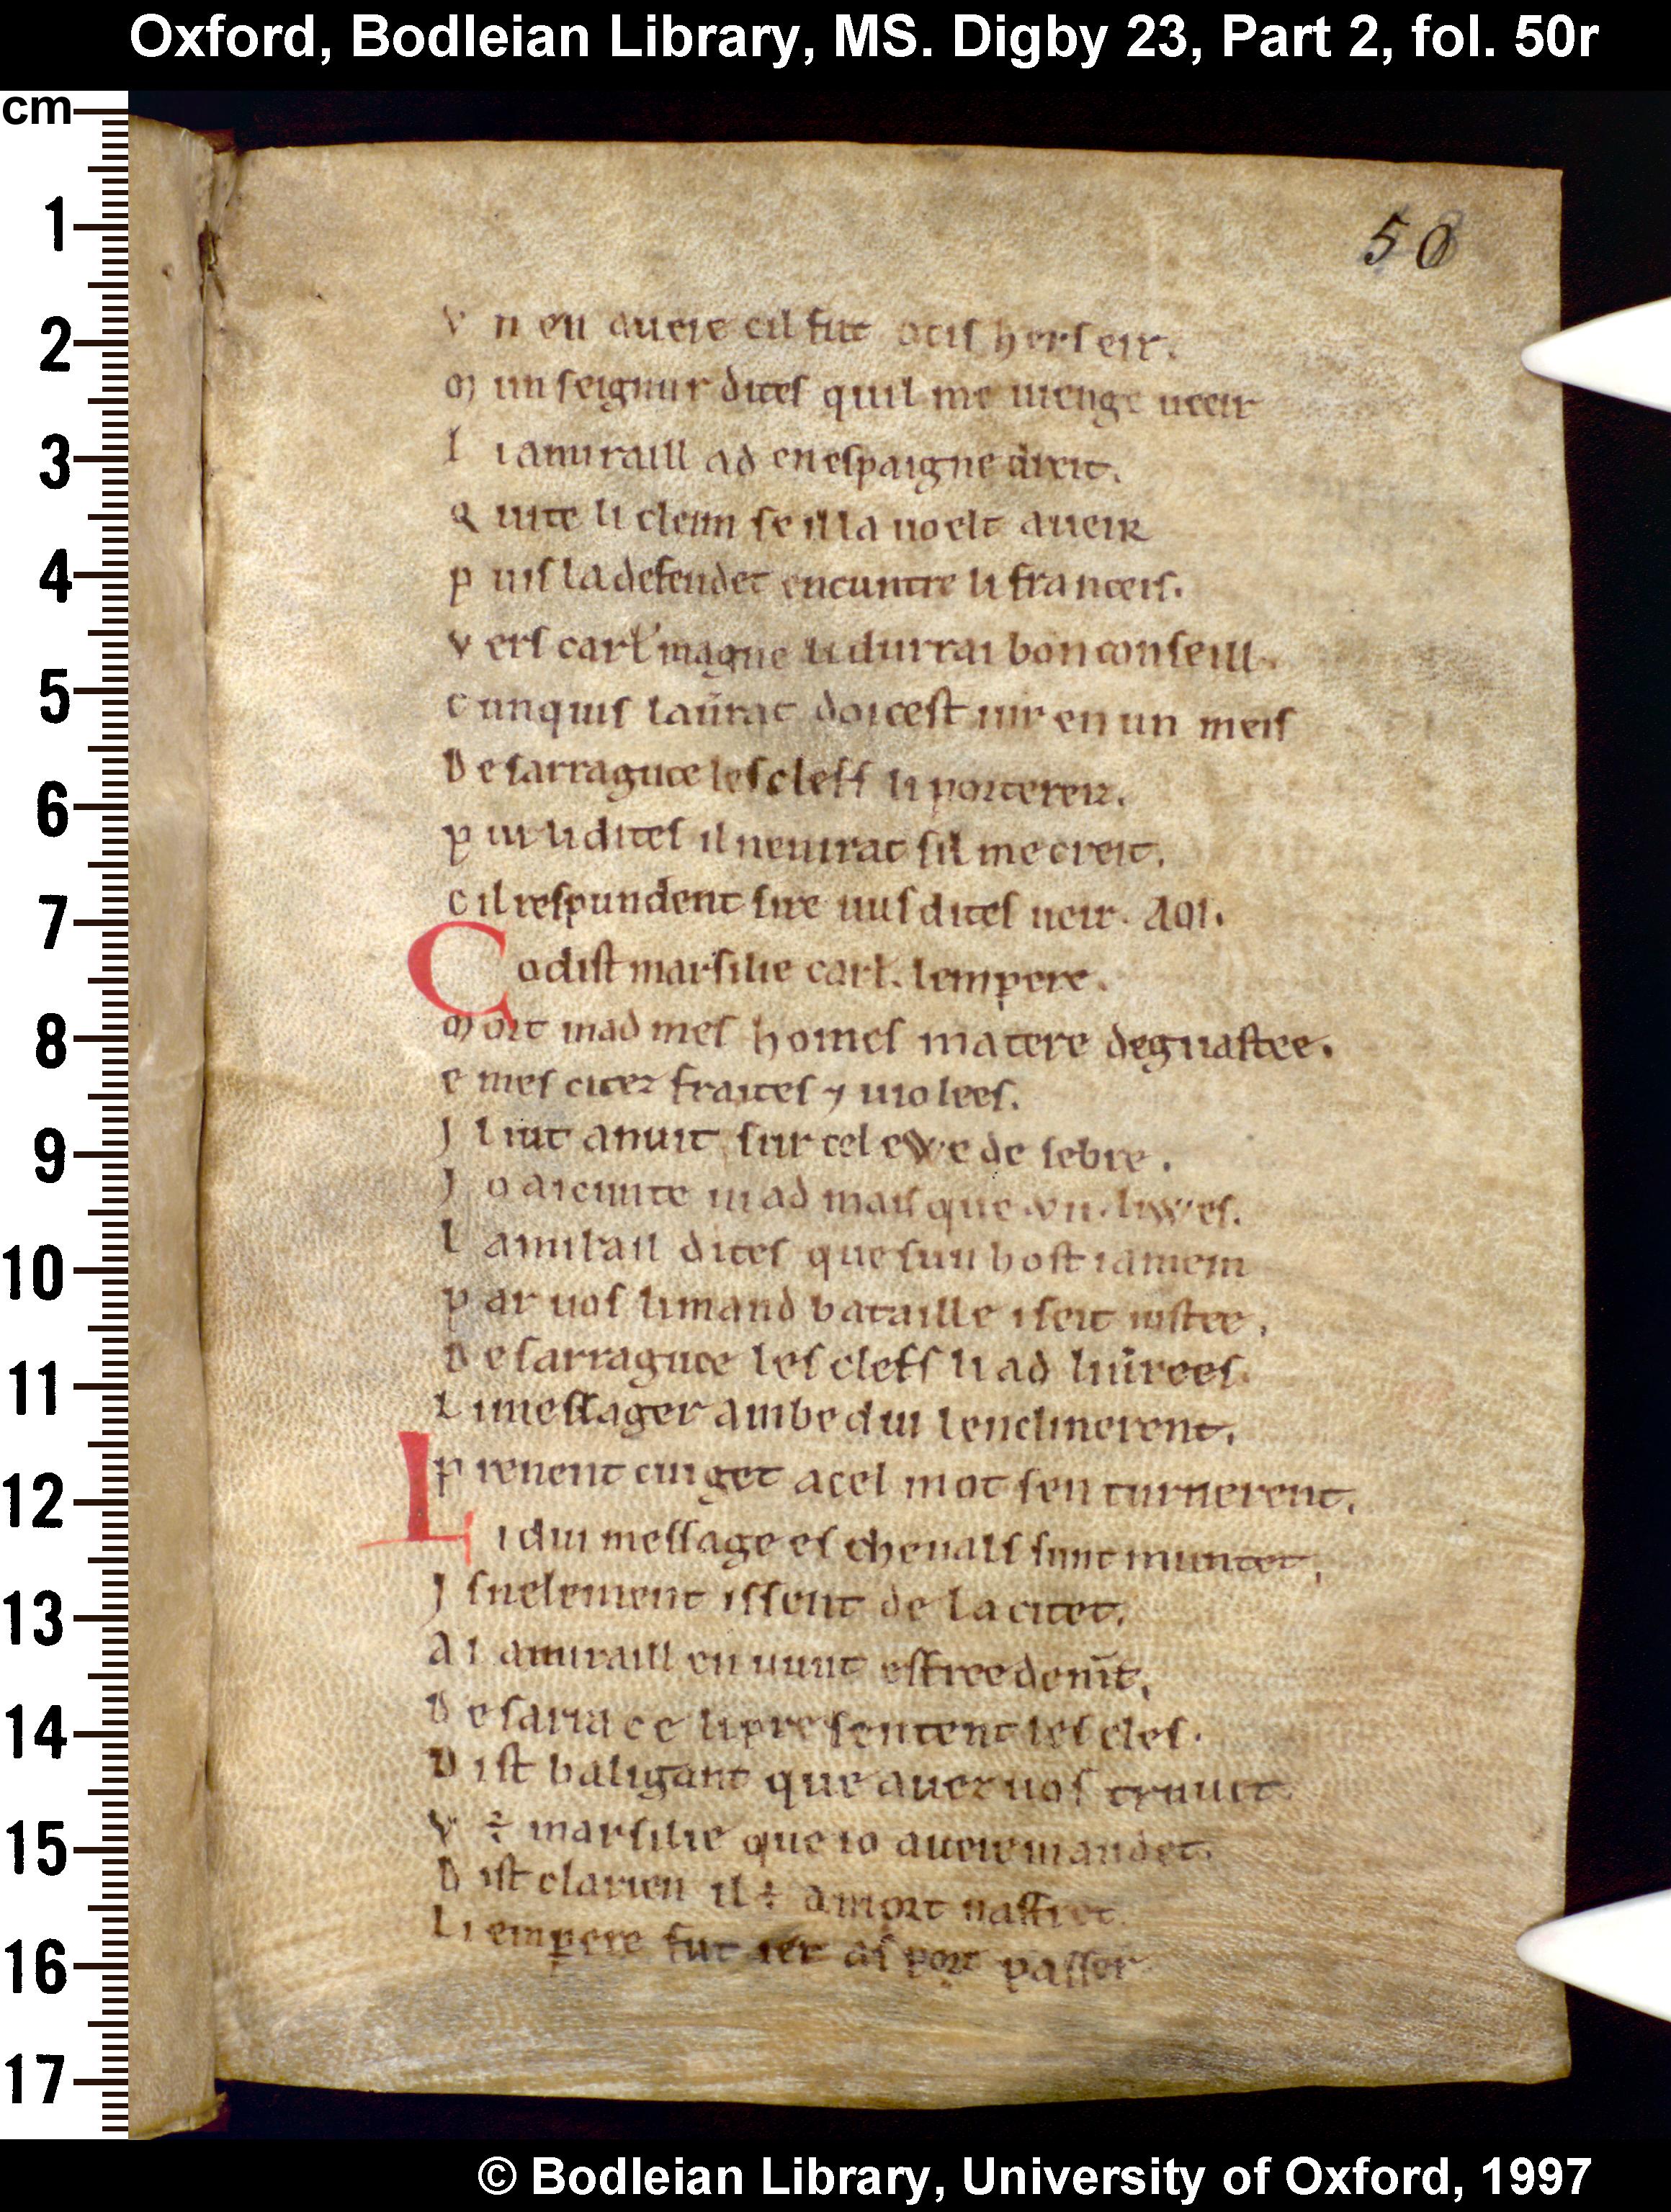 Oxford, Bodleian Library, MS. Digby 23, Part 2, fol. 50r
cm
1
2
3
4
5
6
7
8
9
10
11
12
13
14
15
16
17
50
v n en aueie cil fut ocis her seir.
m un seignur dites quil me uienge ueeir
l i amiraill ad en espaigne dreit.
q uite li cleim se il la uoelt aueir
p uis la defendet encuntre li franceis.
v ers carl'magne li durrai bon conseill.
c unquis laūrat doi cest iur en un meis
D e sarraguce les clefs li portereiz.
p ui li dites il nen irat sil me creit.
c il respundent sire uus dites ueir. AOI.
C o dist marsilie carl. lempere.
m ort mad mes homes ma tere deguastee.
e mes citez fraites ⁊ uiolees.
J l iut anuit sur cel ewe de sebre.
J o ai cunte ni ad mais que .vii. liwes.
l amirail dites que sun host i amein
p ar uos li mand bataille i seit iustee.
D e sarraguce les clefs li ad liūrees.
L i messager ambedui lenclinerent.
p renent cuiget a cel mot sen turnerent.
L i dui message es cheuals sunt muntet.
J snelement issent de la citet.
A l amiraill en uunt esfreedem̄t.
D e sarra ce li presentent les cles.
D ist baligant que auez uos truuet
V ÷ marsilie que io aueie mandet.
D ist clarien il ÷ a mort naffret
Li empere fut ier as porz passer
© Bodleian Library, University of Oxford, 1997